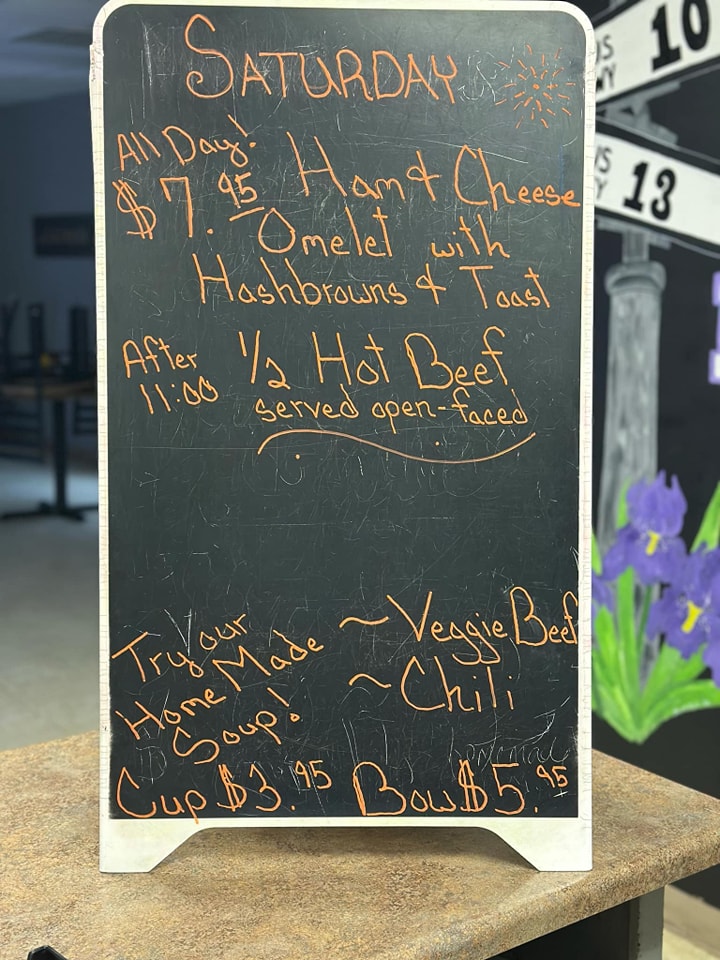 SATURDAY
All Day!
$7.95 Ham & Cheese
Omelet with
Hashbrowns & Toast
After
11:00
1/2 Hot Beef
served open-faced
Try our
Home Made
Soup!
~Veggie Beef
~Chili
Cup $3.95 Bowl $5.95
10
13